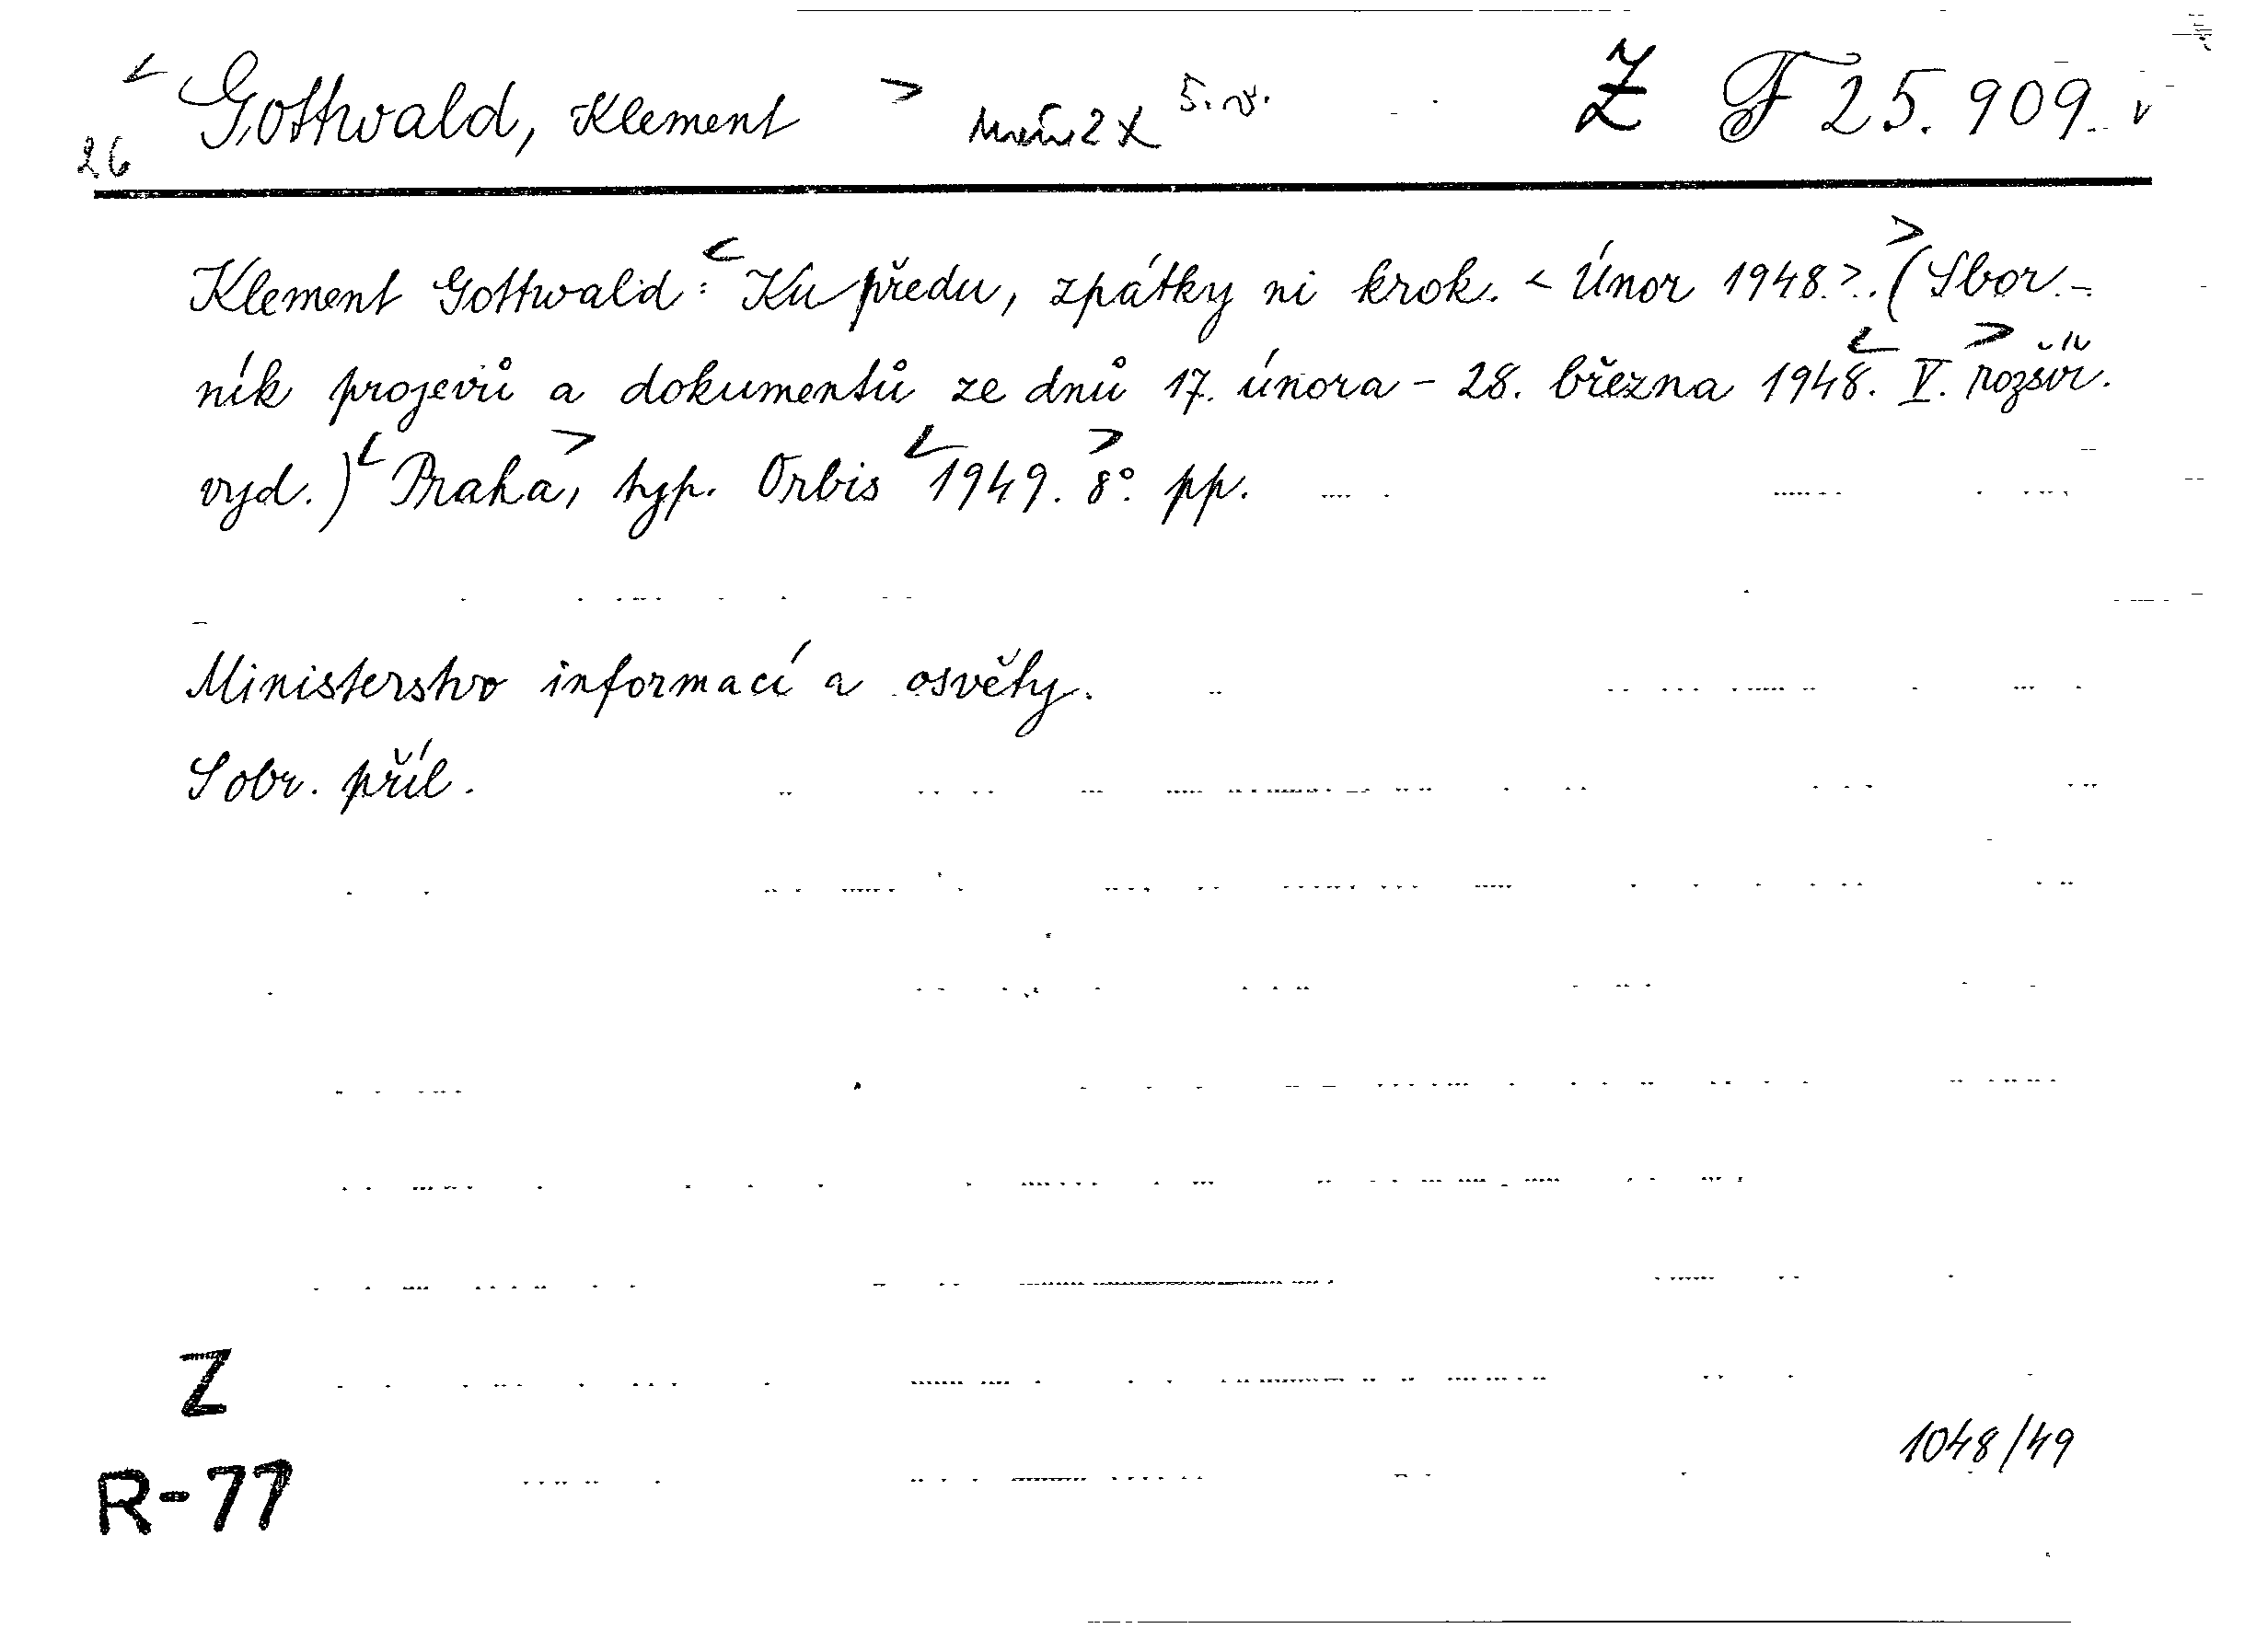 < Gottwald, Klement > 2 X 5. v. Z F 25.909.
26
Klement Gottwald: <Ku předu, zpátky ni krok. < Únor 1948.>.> (Sbor.-
ník projevů a dokumentů ze dnů 17. února - 28. března 1948. <V.> rozšíř.
vyd.) <Praha,> typ. Orbis <1949.> 8°. pp.
Ministerstvo informací a osvěty.
S obr. příl.
Z
1048/49
R-77